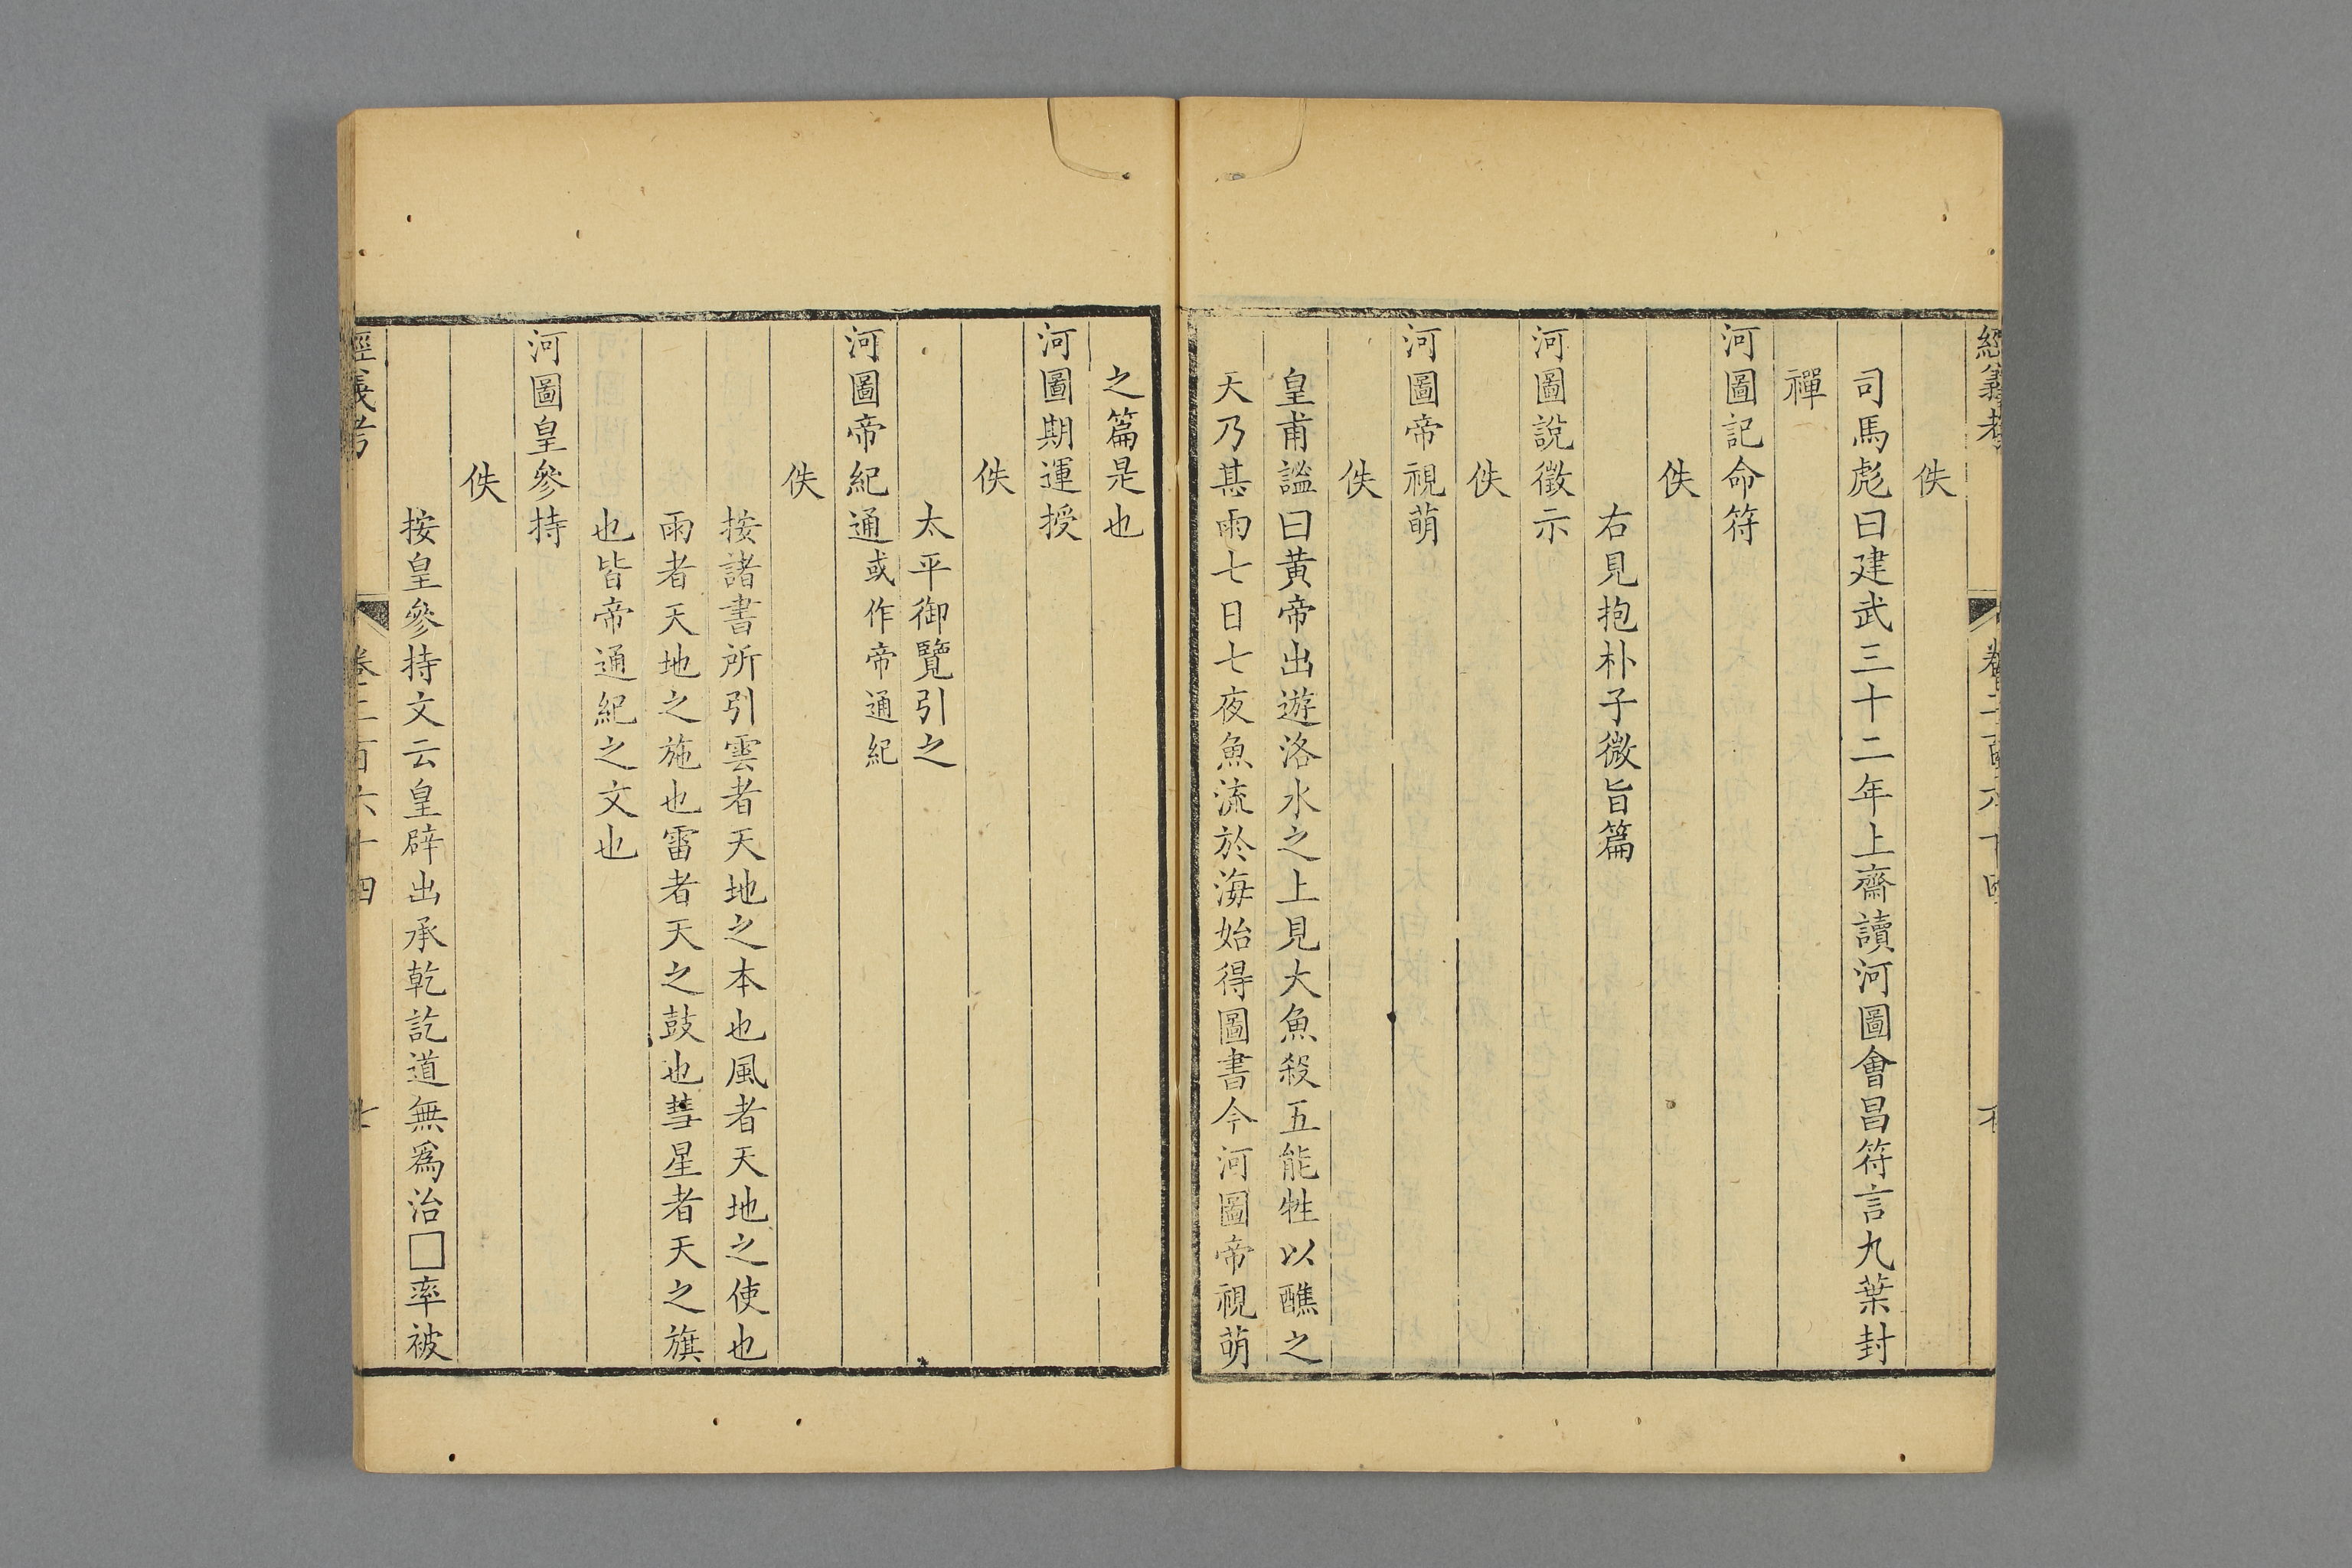 佚
司馬彪曰建武三十二年上齋讀河圖會昌符言九葉封
禪
河圖記命符
佚
右見抱朴子微旨篇
河圖說徵示
佚
河圖帝視萌
佚
皇甫謐曰黃帝出遊洛水之上見大魚殺五能牲以醮之
天乃甚雨七日七夜魚流於海始得圖書今河圖帝視萌
之篇是也
河圖期運授
佚
太平御覽引之
河圖帝紀通或作帝通紀
佚
按諸書所引雲者天地之本也風者天地之使也
雨者天地之施也雷者天之鼓也彗星者天之旗
也皆帝通紀之文也
河圖皇參持
佚
按皇參持文云皇辟出承乾訖道無爲治□率被
經義考 卷二百六十四 七